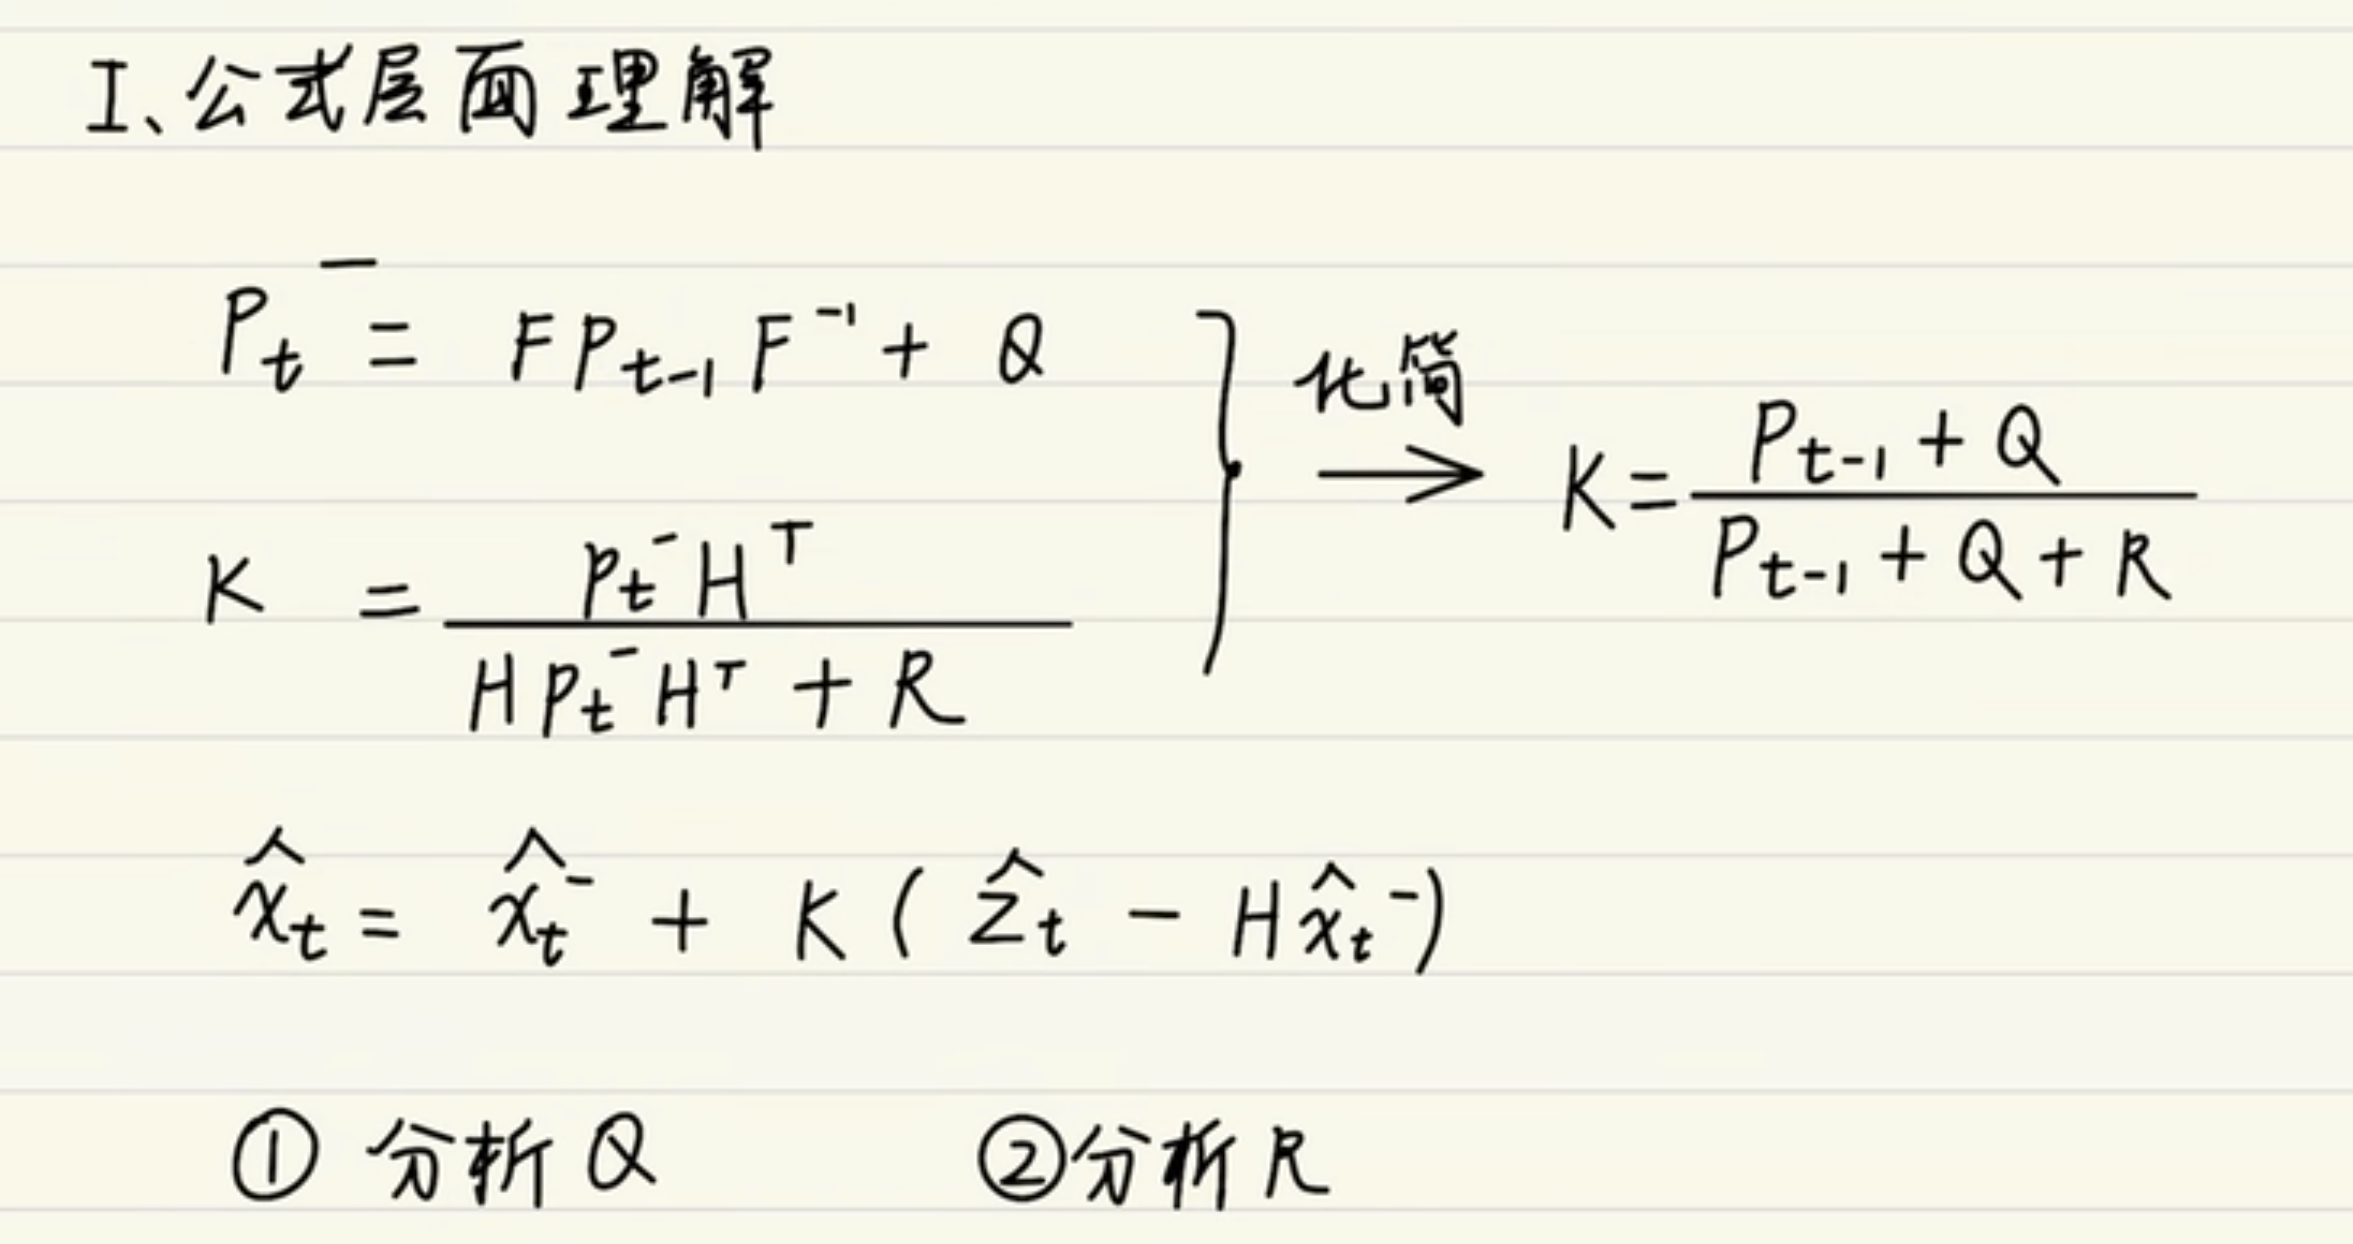 I、公式层面理解
P_t^- = F P_{t-1} F^{-1} + Q
化简
→ K = \frac{P_{t-1} + Q}{P_{t-1} + Q + R}
K = \frac{P_t^- H^T}{H P_t^- H^T + R}
\hat{x}_t = \hat{x}_t^- + K ( \hat{z}_t - H \hat{x}_t^- )
① 分析 Q ② 分析 R